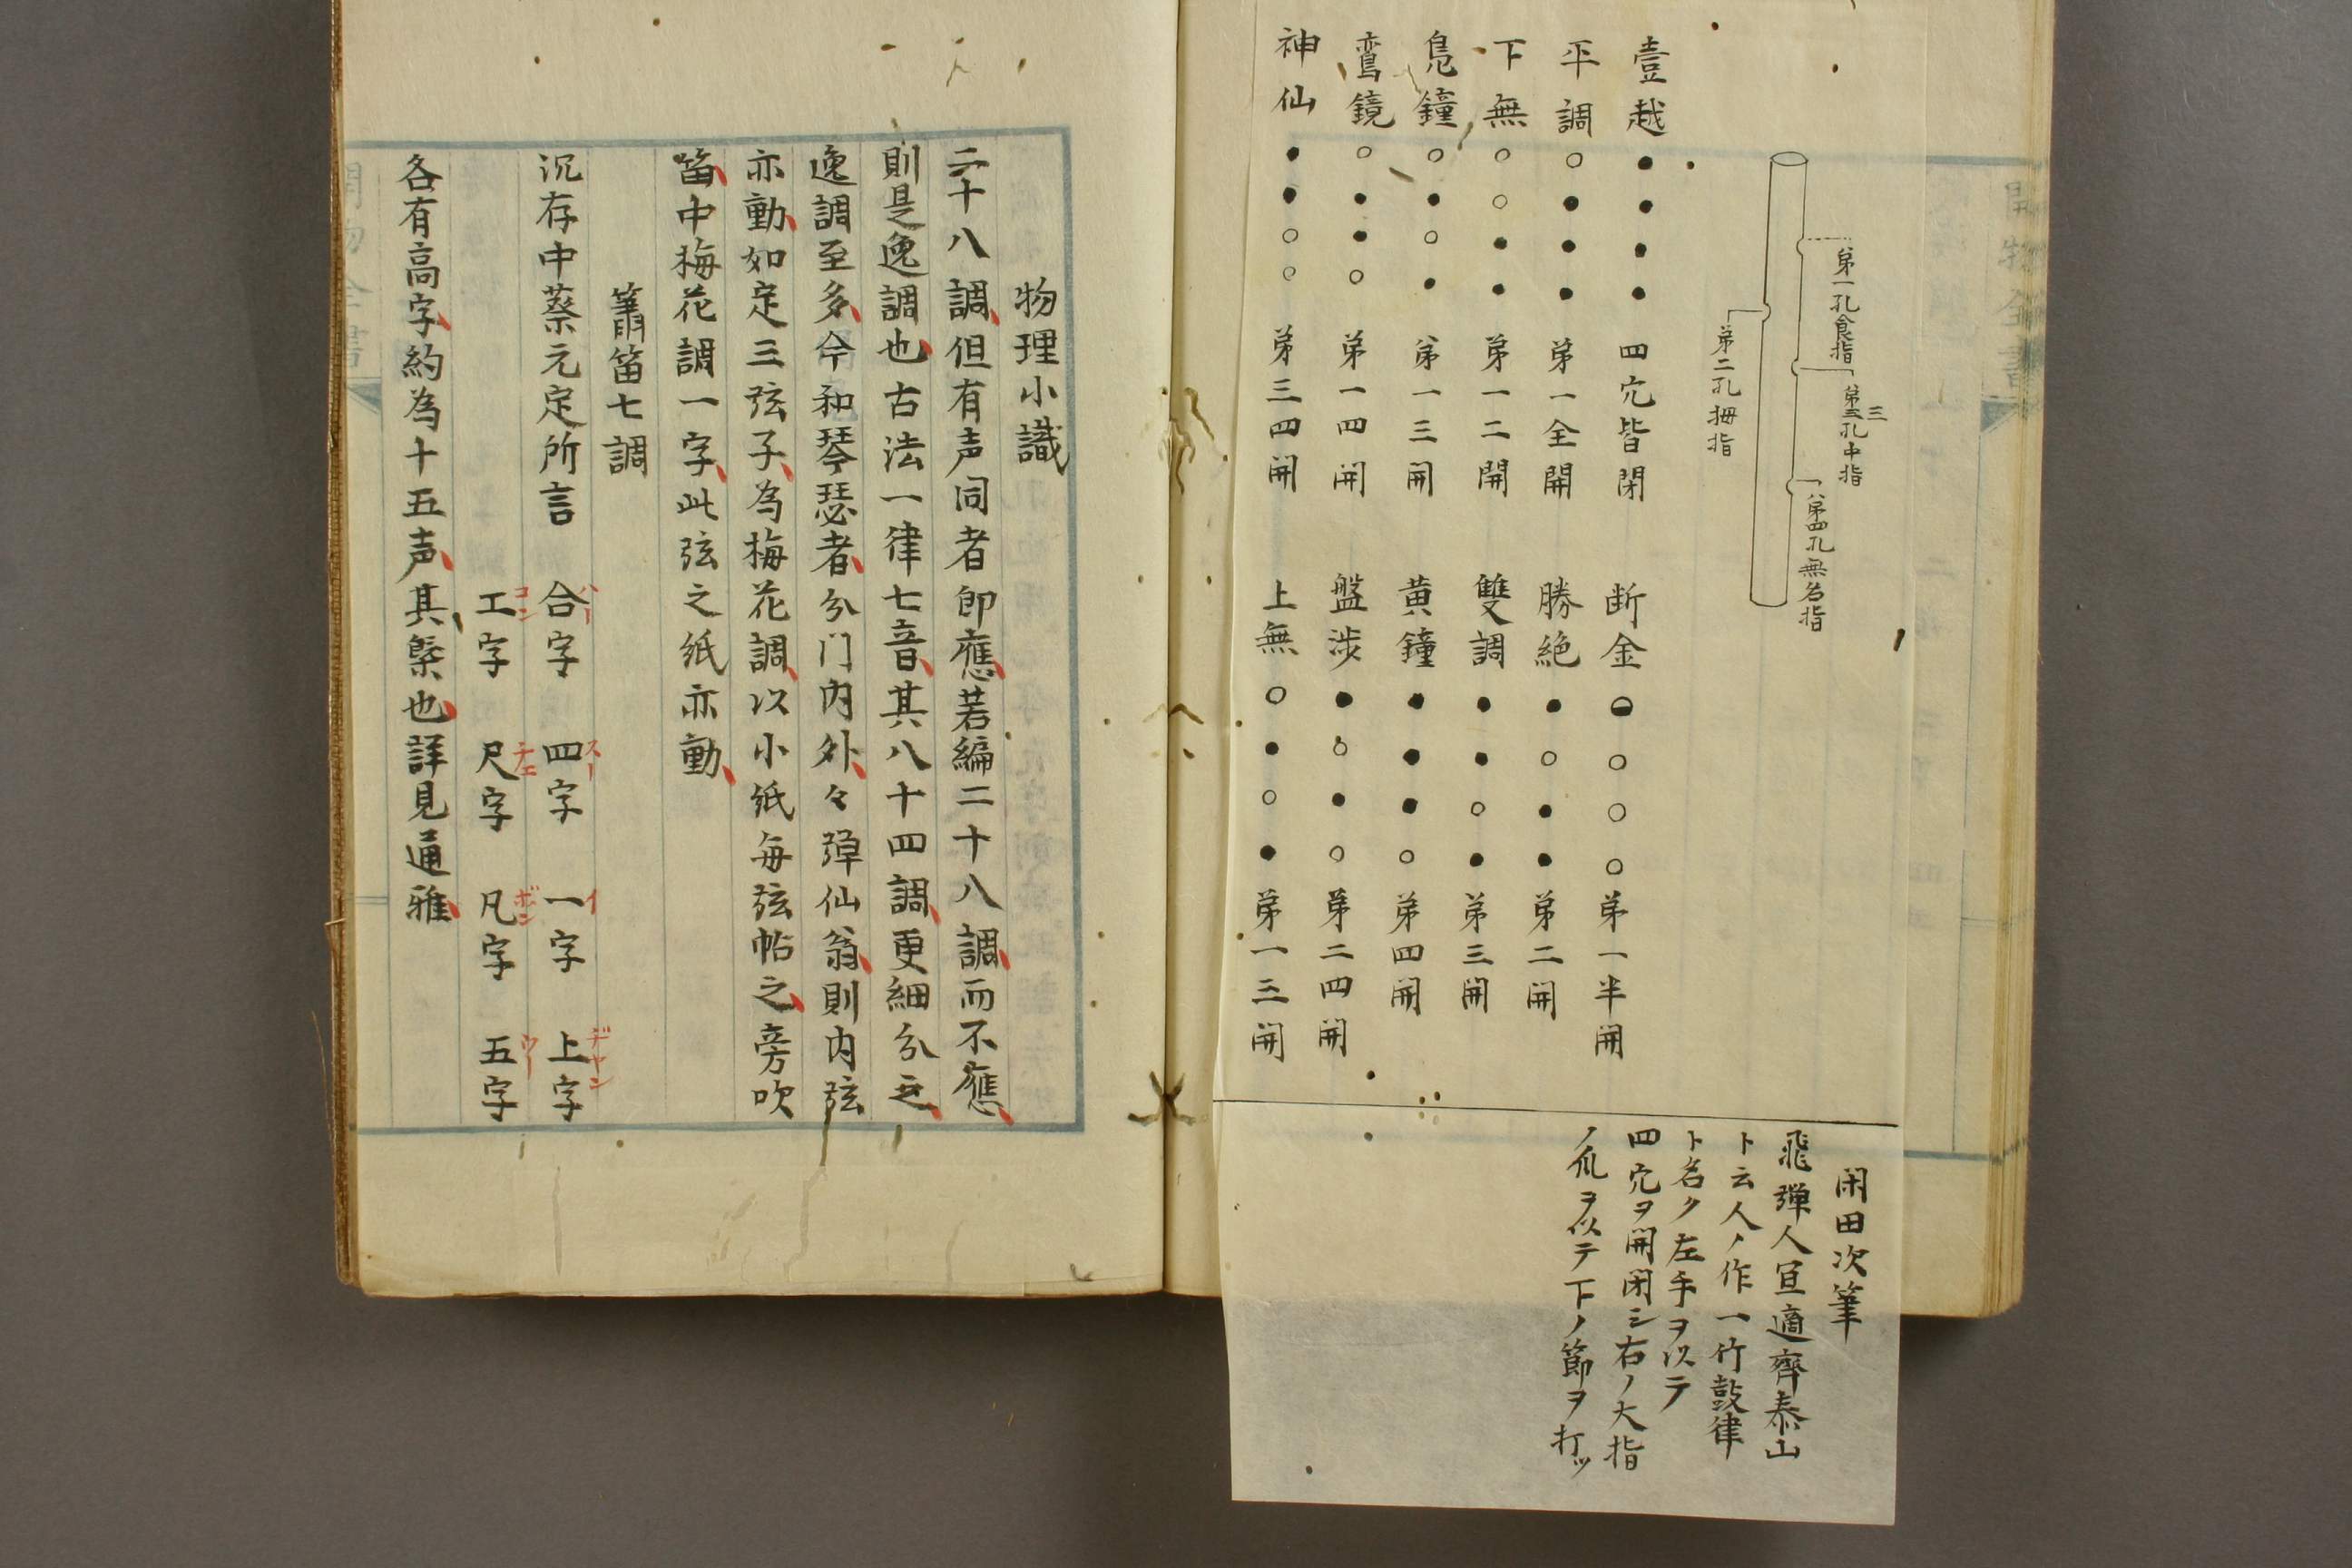 第一孔食指
第三孔中指
三
第四孔無名指
第二孔拇指
壹越●●●●四穴皆閉
断金◒○○○第一半開
平調○●●●第一全開
勝絶●○●●第二開
下無○○●●第一二開
雙調●●○●第三開
鳬鐘○●○●第一三開
黄鐘●●●○第四開
鸞鏡○●●○第一四開
盤渉●○●○第二四開
神仙●●○○第三四開
上無○●○●第一三開
閑田次筆
飛彈人亘適齊泰山
ト云人ノ作一竹鼓律
ト名ク左手ヲ以テ
四穴ヲ開閉シ右ノ大指
ノ爪ヲ以テ下ノ節ヲ打ツ
物理小識
二十八調但有声同者即應若編二十八調而不應
則是逸調也古法一律七音其八十四調更細分之
逸調至多今和琴瑟者分门内外々彈仙翁則内弦
亦動如定三弦子為梅花調以小紙毎弦帖之旁吹
笛中梅花調一字此弦之紙亦動
簫笛七調
沉存中蔡元定所言 合字 四字 一字 上字
ハー スー イ ヂヤン
工字 尺字 凡字 五字
コン チエ ボン ウー
各有高字約為十五声其槩也詳見通雅